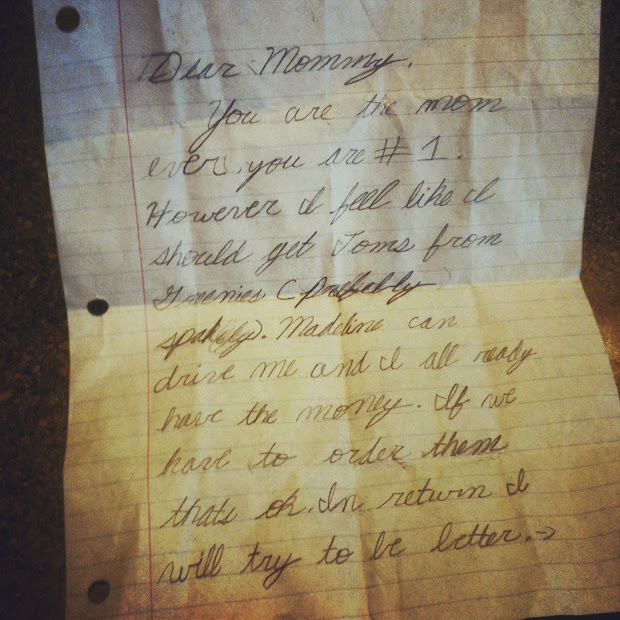 Dear Mommy,
You are the mom
ever, you are # 1.
However I fell like I
should get Toms from
(probably
). Madeline can
drive me and I all ready
have the money. If we
have to order them
thats ok. In return I
will try to be better.